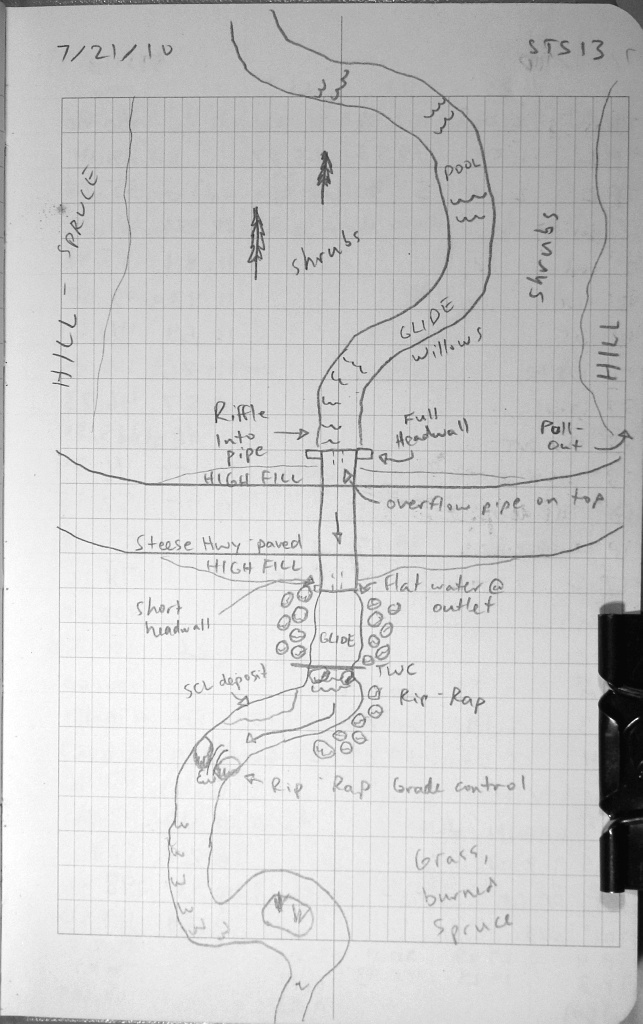 7/21/10
STS13
POOL
HILL - SPRUCE
shrubs
shrubs
GLIDE
willows
HILL
Riffle
Into
pipe
Full
Headwall
Pull-
Out
HIGH FILL
overflow pipe on top
Steese Hwy-paved
HIGH FILL
Short
headwall
Flat water @
outlet
GLIDE
TWC
SCL deposit
Rip-Rap
Rip-Rap Grade control
Grass,
burned
Spruce